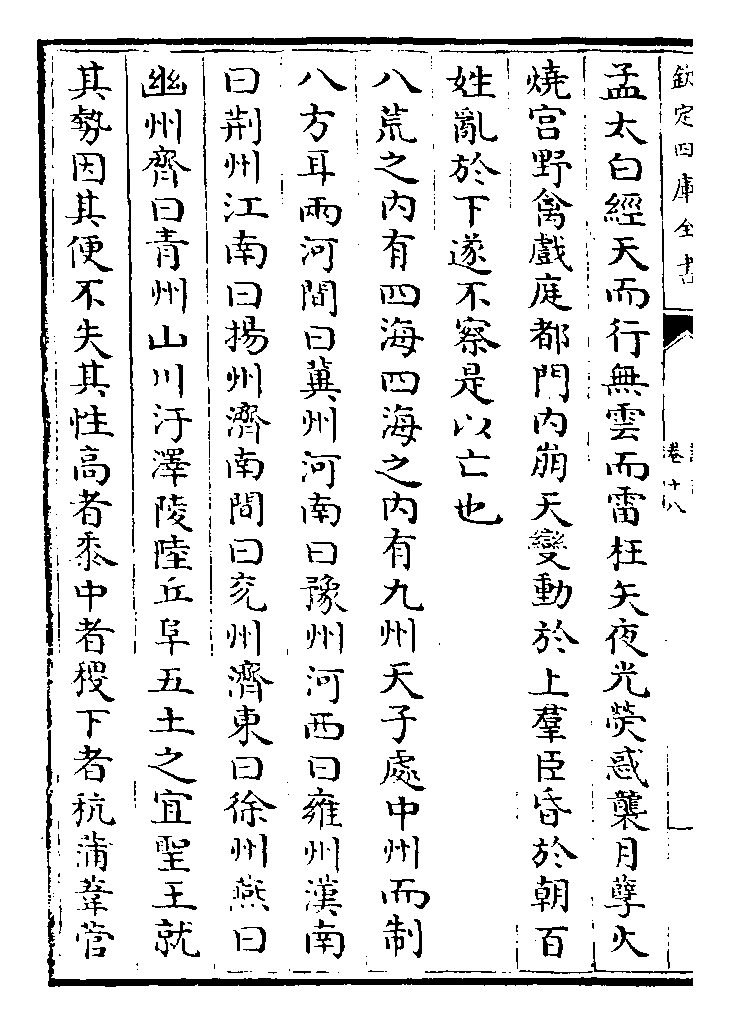 欽定四庫全書
卷十八
孟太白經天而行無雲而雷枉矢夜光熒惑襲月孽火
燒宫野禽戲庭都門内崩天變動於上羣臣昏於朝百
姓亂於下遂不察是以亡也
八荒之内有四海四海之内有九州天子處中州而制
八方耳兩河間曰冀州河南曰豫州河西曰雍州漢南
曰荆州江南曰揚州濟南間曰兖州濟東曰徐州燕曰
幽州齊曰青州山川汙澤陵陸丘阜五土之宜聖王就
其勢因其便不失其性高者黍中者稷下者秔蒲葦菅